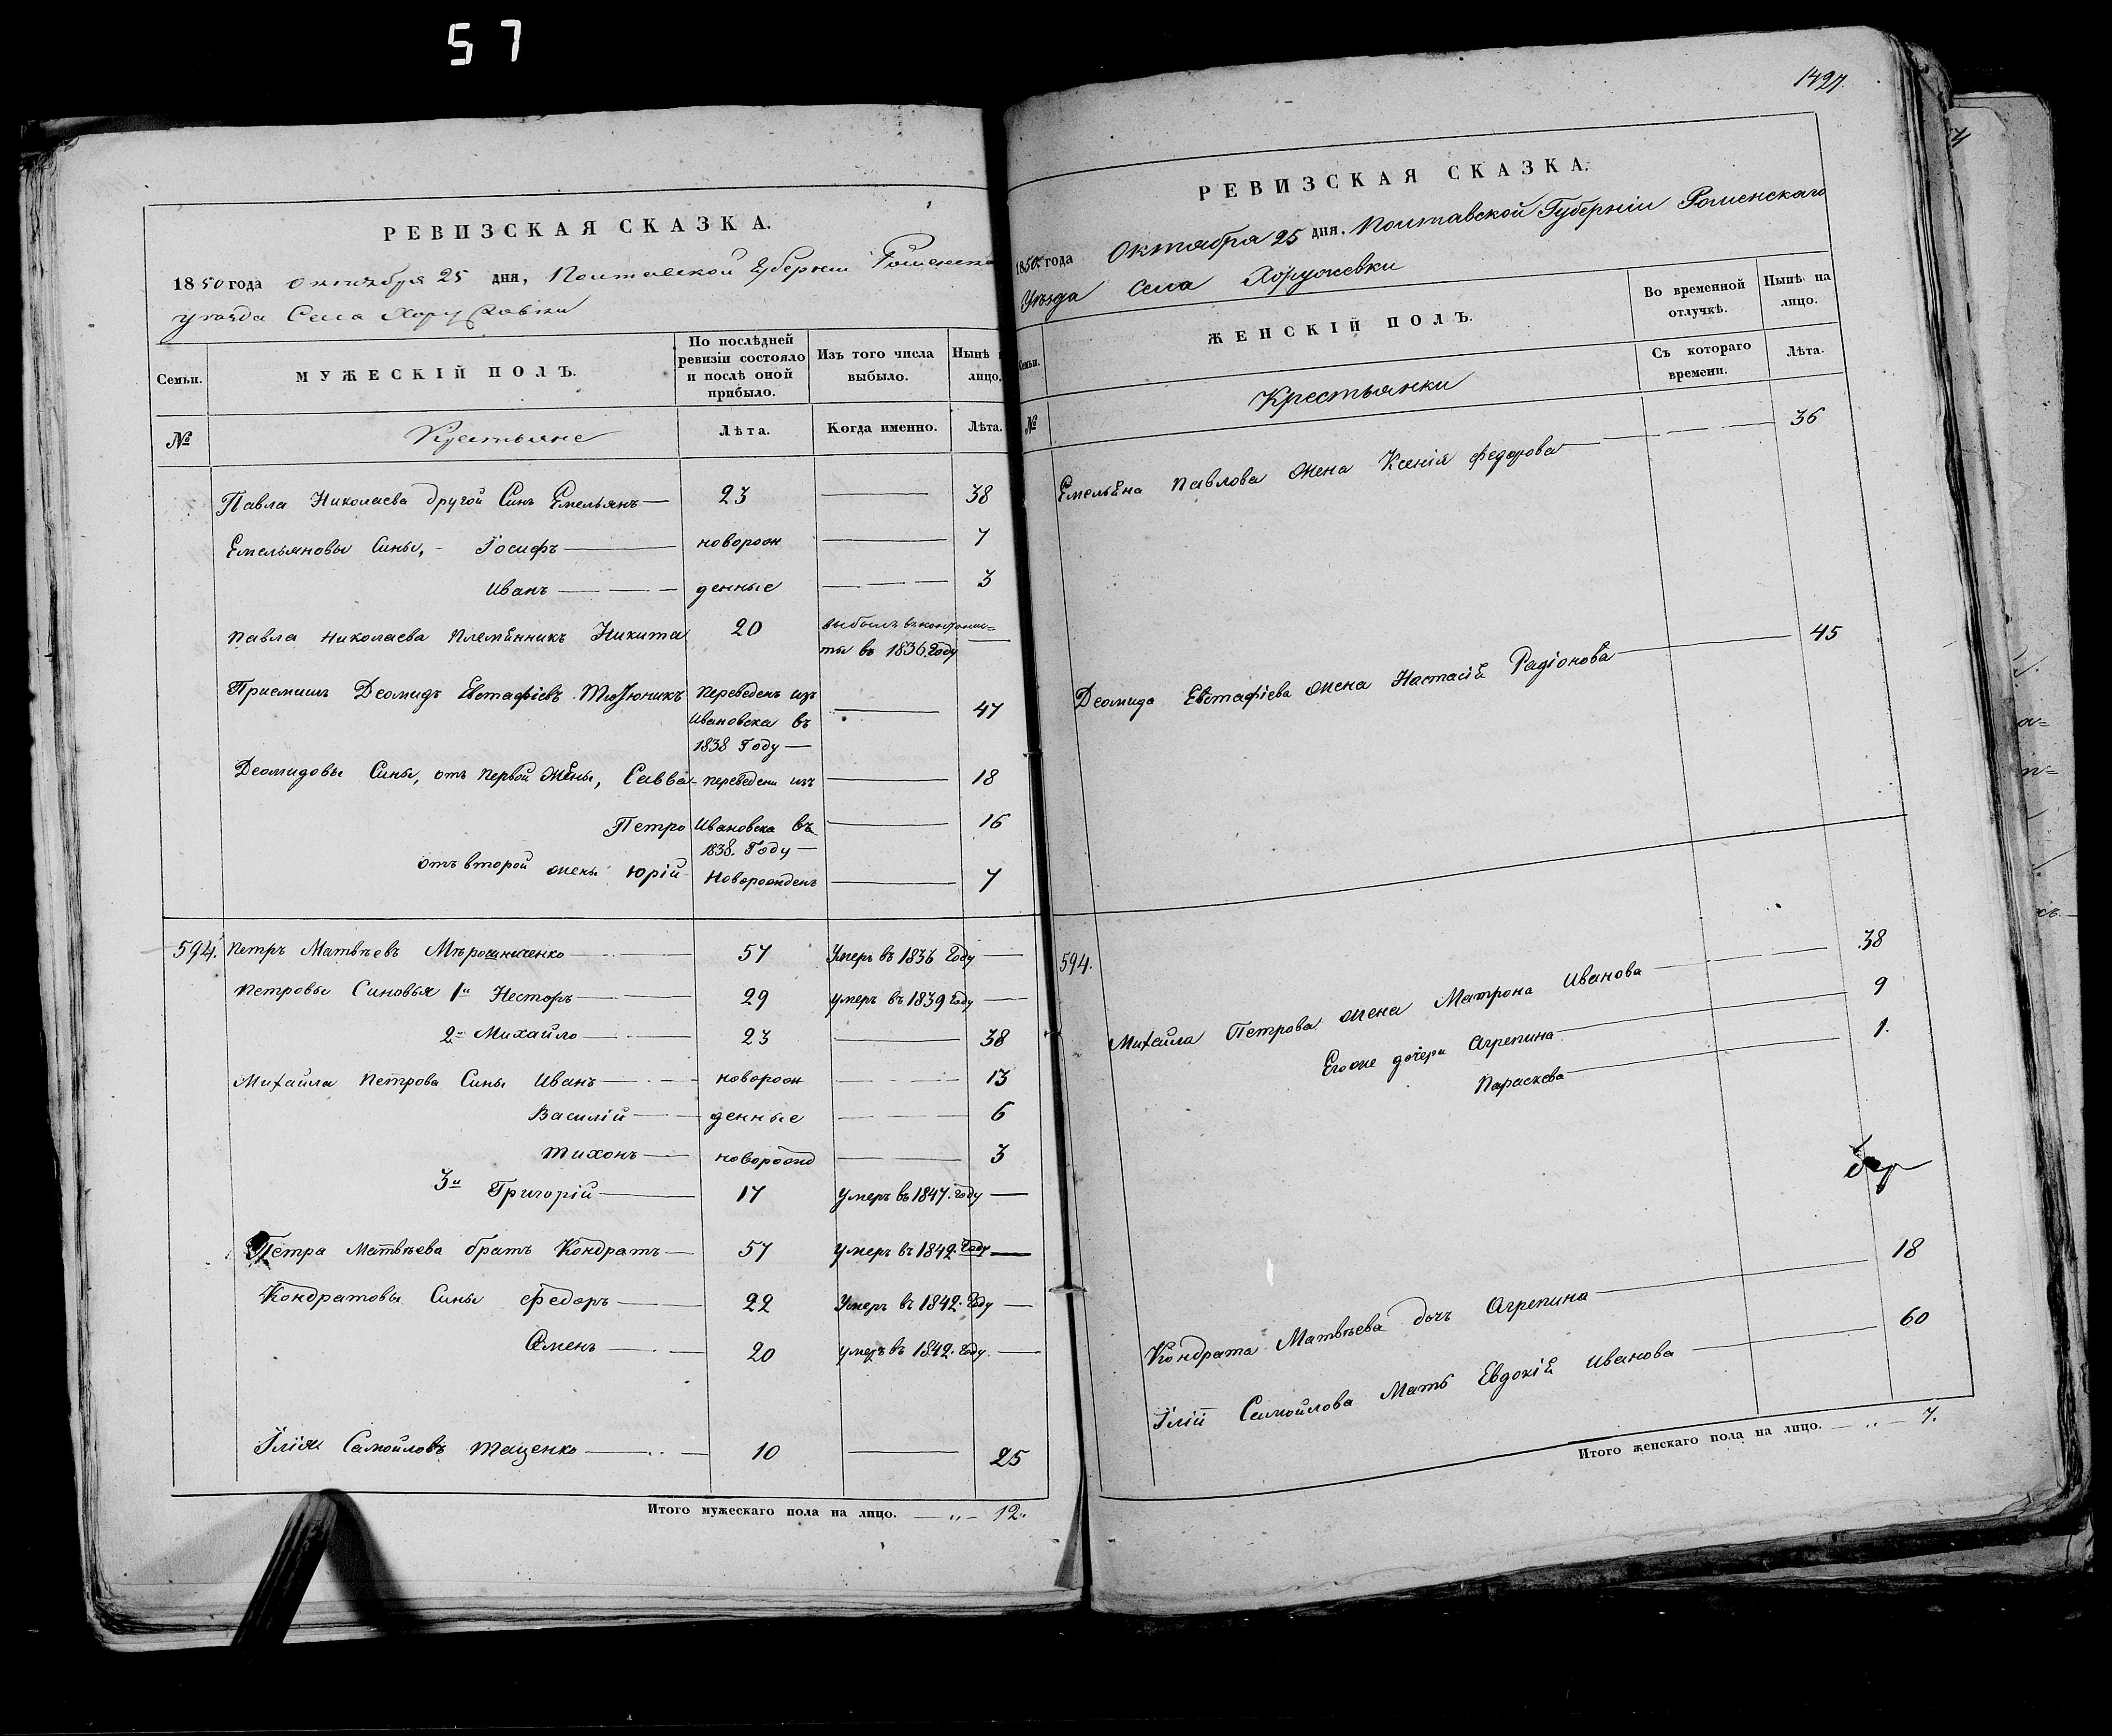 57
РЕВИЗСКАЯ СКАЗКА.
1850 года Октября 25 дня, Полтавской Губерніи Роменска
уѣзда Села Хоружовки
Семьи.
МУЖЕСКІЙ ПОЛЪ.
По послѣдней ревизіи состояло и послѣ оной прибыло.
Изъ того числа выбыло.
Нынѣ лицо.
№
Крестьяне
Лѣта.
Когда именно.
Лѣта.
Павла Николаева другой Синъ Емельянъ 23 38
Емельяновы Сины, Іосифъ новорож 7
Иванъ денные 3
Павла Николаева Племѣнникъ Никита 20
ты въ 1836 Году
Приемишъ Деомидъ Евстафіевъ Переведенъ изъ 47
Ивановска въ
1838 Году
Деомидовы Сины, отъ первой жѣны, Савва переведени изъ 18
Петро Ивановска въ 16
1838. Году
отъ второй жены Юрій Новорожденъ 7
594. Петръ Матвѣевъ Мѣрошниченко 57 Умеръ въ 1836 Году
Петровы Синовья 1й Несторъ 29 умеръ въ 1839 Году
2й Михайло 23 38
Михайла Петрова Сины Иванъ новорож 13
Василій денные 6
Тихонъ новорожд 3
3й Григорій 17 умеръ въ 1847. Году
Петра Матвѣева братъ Кондратъ 57 умеръ въ 1842 Году
Кондратовы Сины Федоръ 22 Умеръ въ 1842. Году
Семенъ 20 умеръ въ 1842. Году
Ілія Самойловъ Тащенко 10 25
Итого мужескаго пола на лицо. 12.
1427.
РЕВИЗСКАЯ СКАЗКА.
1850 года Октября 25 дня, Полтавской Губерніи Роменскаго
Уѣзда Села Хоружевки
Семьи.
ЖЕНСКІЙ ПОЛЪ.
Во временной отлучкѣ.
Нынѣ на лицо.
№
Крестьянки
Съ котораго времени.
Лѣта.
Емельяна Павлова жена Ксенія Федорова 36
Деомида Евстафіева жена Настасія Радіонова 45
594.
Михайла Петрова жена Матрона Иванова 38
Егоже дочери Агрепина 9
Параскева 1.
Кондрата Матвѣева дочъ Агрепина 18
Іліи Самойлова Мать Евдокія Иванова 60
Итого женскаго пола на лицо. 7.